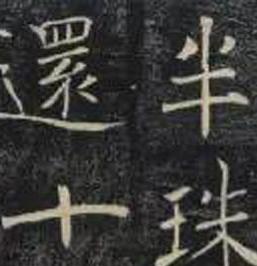 半珠
還十